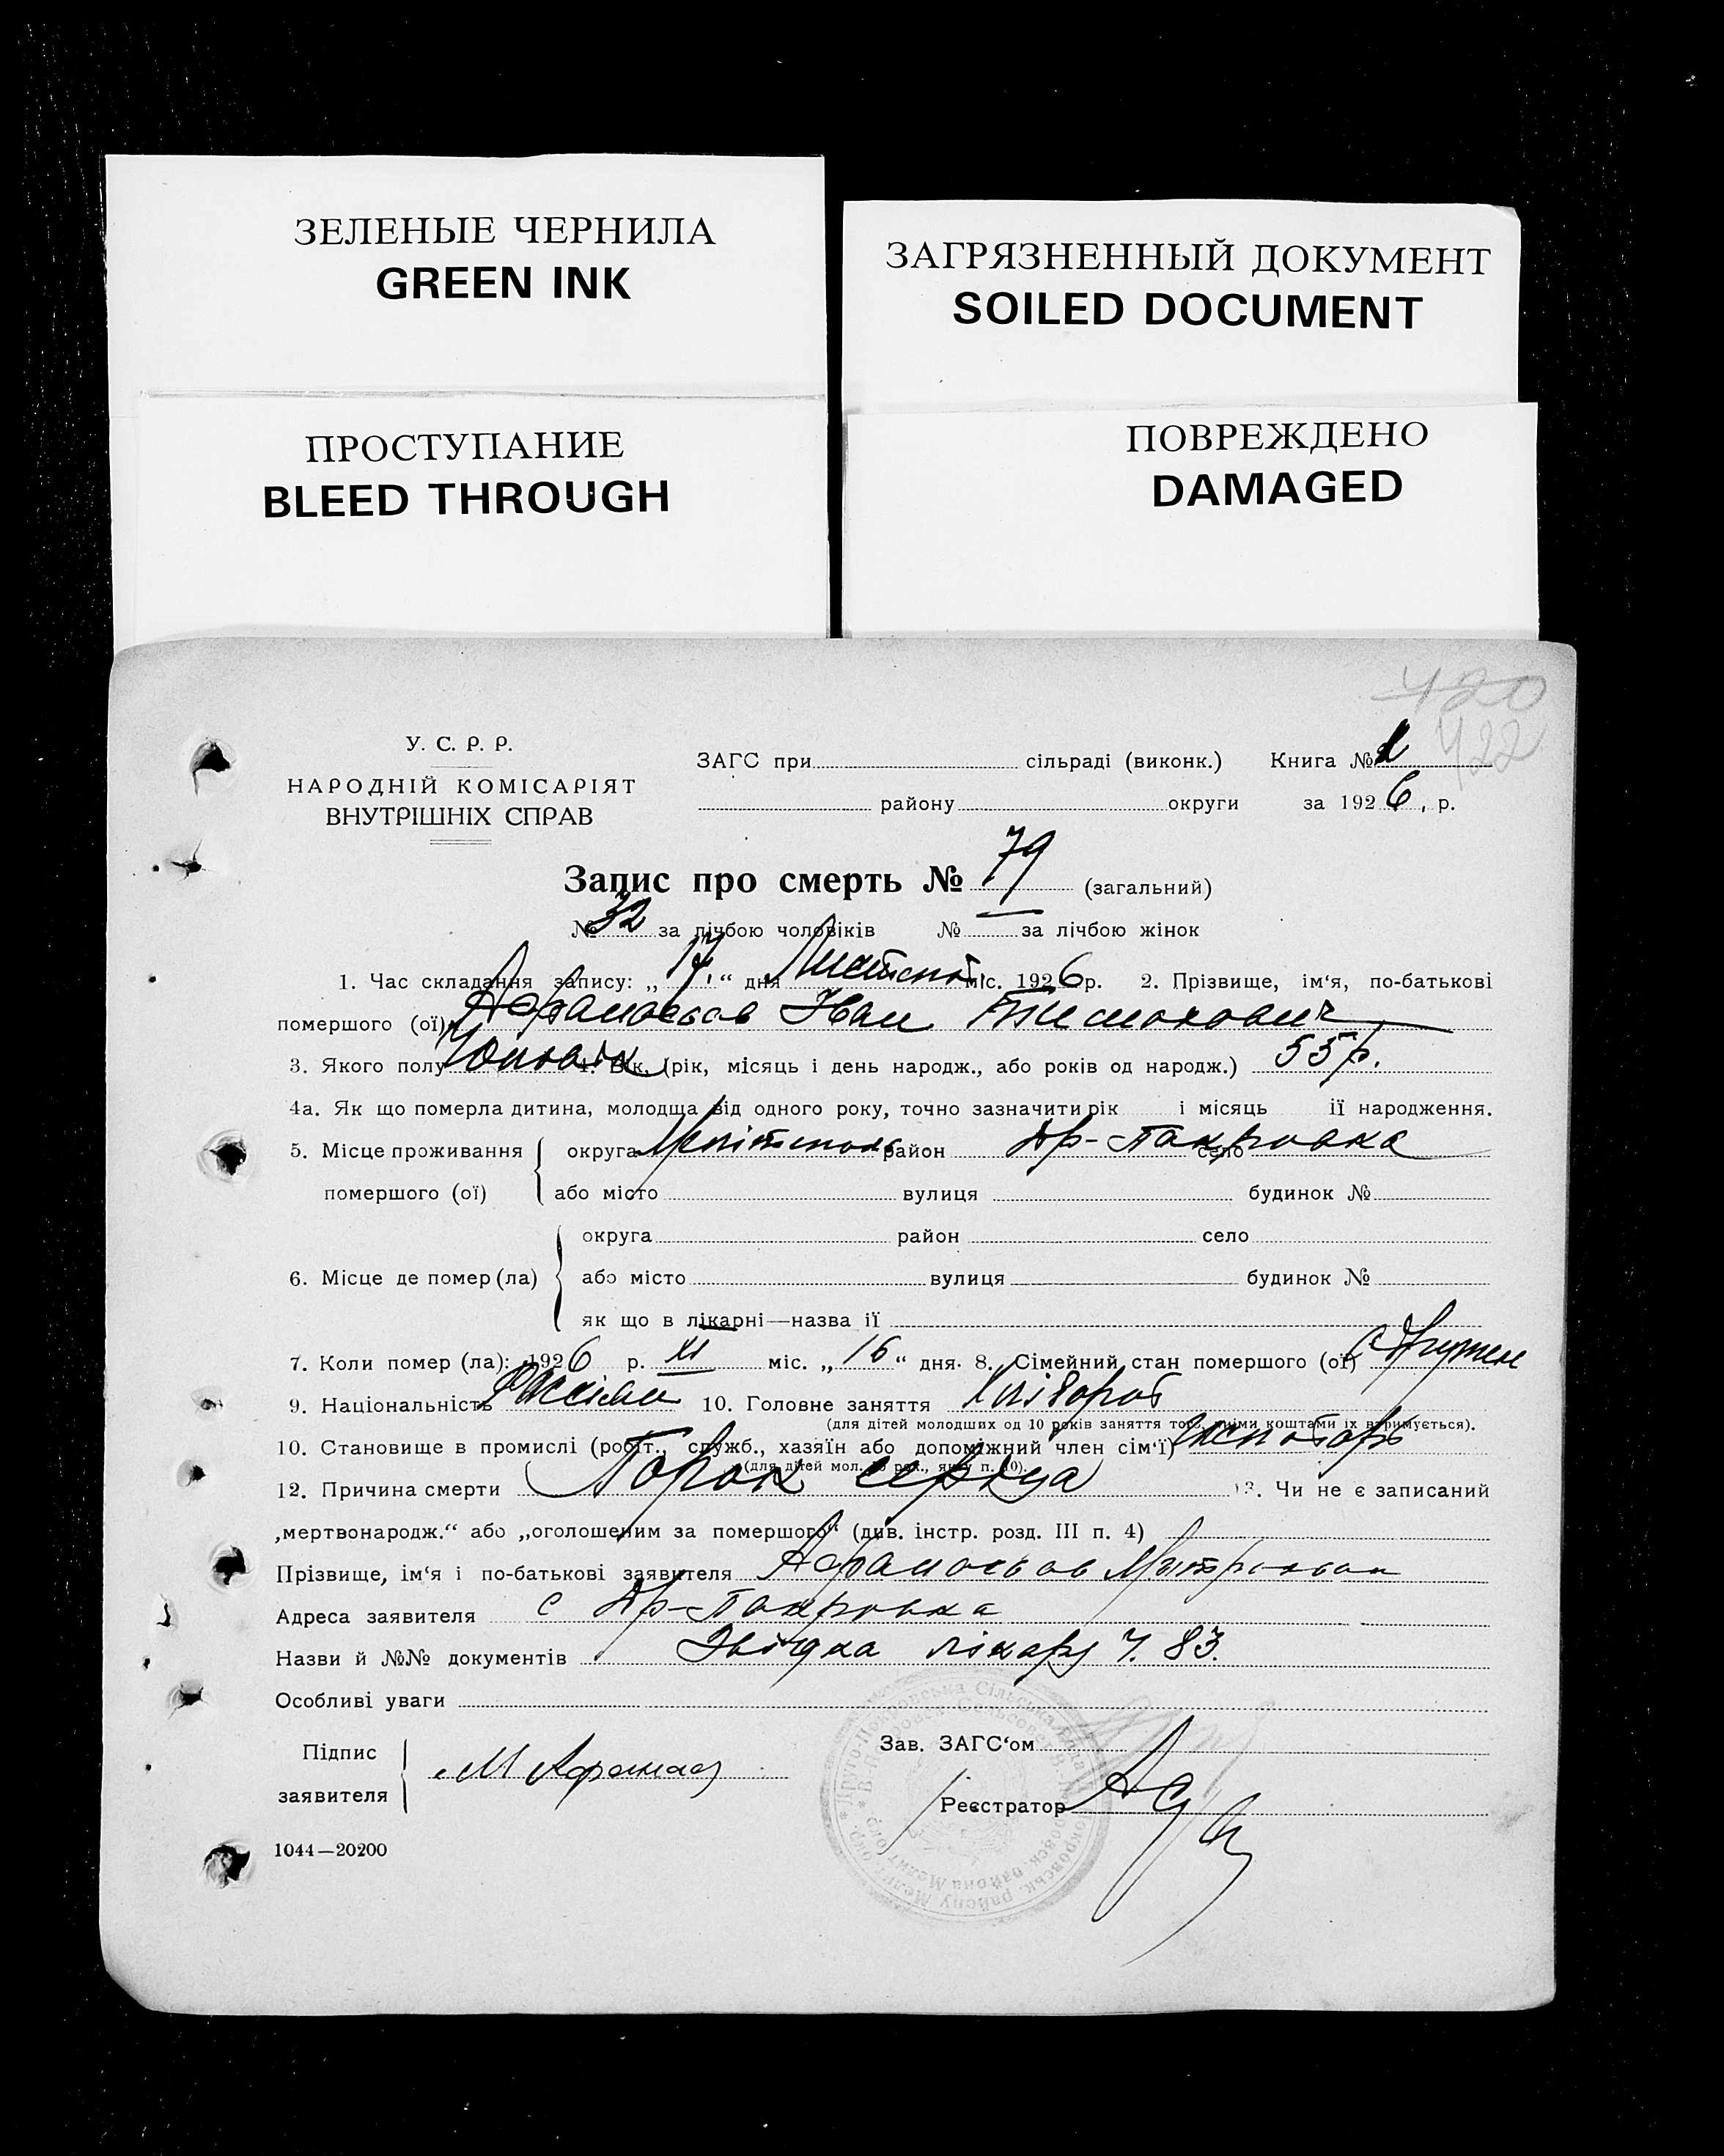 ЗЕЛЕНЫЕ ЧЕРНИЛА
GREEN INK
ЗАГРЯЗНЕННЫЙ ДОКУМЕНТ
SOILED DOCUMENT
ПРОСТУПАНИЕ
BLEED THROUGH
ПОВРЕЖДЕНО
DAMAGED
420
422
У. С. Р. Р.
НАРОДНІЙ КОМІСАРІЯТ
ВНУТРІШНІХ СПРАВ
ЗАГС при сільраді (виконк.) Книга №
району округи за 1926 р.
Запис про смерть № 79 (загальний)
№ 32 за лічбою чоловіків № за лічбою жінок
1. Час складання запису: „17“ дня Листопад міс. 1926 р. 2. Прізвище, ім‘я, по-батькові
помершого (ої) Афанасьов Іван Тимохович
3. Якого полу Чоловік 4. Вік, (рік, місяць і день народж., або років од народж.) 55 р.
4а. Як що померла дитина, молодща від одного року, точно зазначити рік і місяць її народження.
5. Місце проживання округа Мелітополь район село Др-Покровка
помершого (ої) або місто вулиця будинок №
округа район село
6. Місце де помер (ла) або місто вулиця будинок №
як що в лікарні—назва її
7. Коли помер (ла): 1926 р. XI міс. „16“ дня. 8. Сімейний стан помершого (ої)
9. Національність 10. Головне заняття Хлібороб
(для дітей молодших од 10 років заняття того, чиїми коштами їх втримується).
10. Становище в промислі (робіт., служб., хазяїн або допоміжний член сім‘ї)
(для дітей мол. 10 рок., як у п. 10).
12. Причина смерти Порок серця 13. Чи не є записаний
„мертвонародж.“ або „оголошеним за помершого“ (див. інстр. розд. III п. 4)
Прізвище, ім‘я і по-батькові заявителя Афанасьов
Адреса заявителя с Др-Покровка
Назви й №№ документів Звідка лікару Ч. 83.
Особливі уваги
Підпис
заявителя
М Афанас
Зав. ЗАГС‘ом
Реєстратор
1044—20200